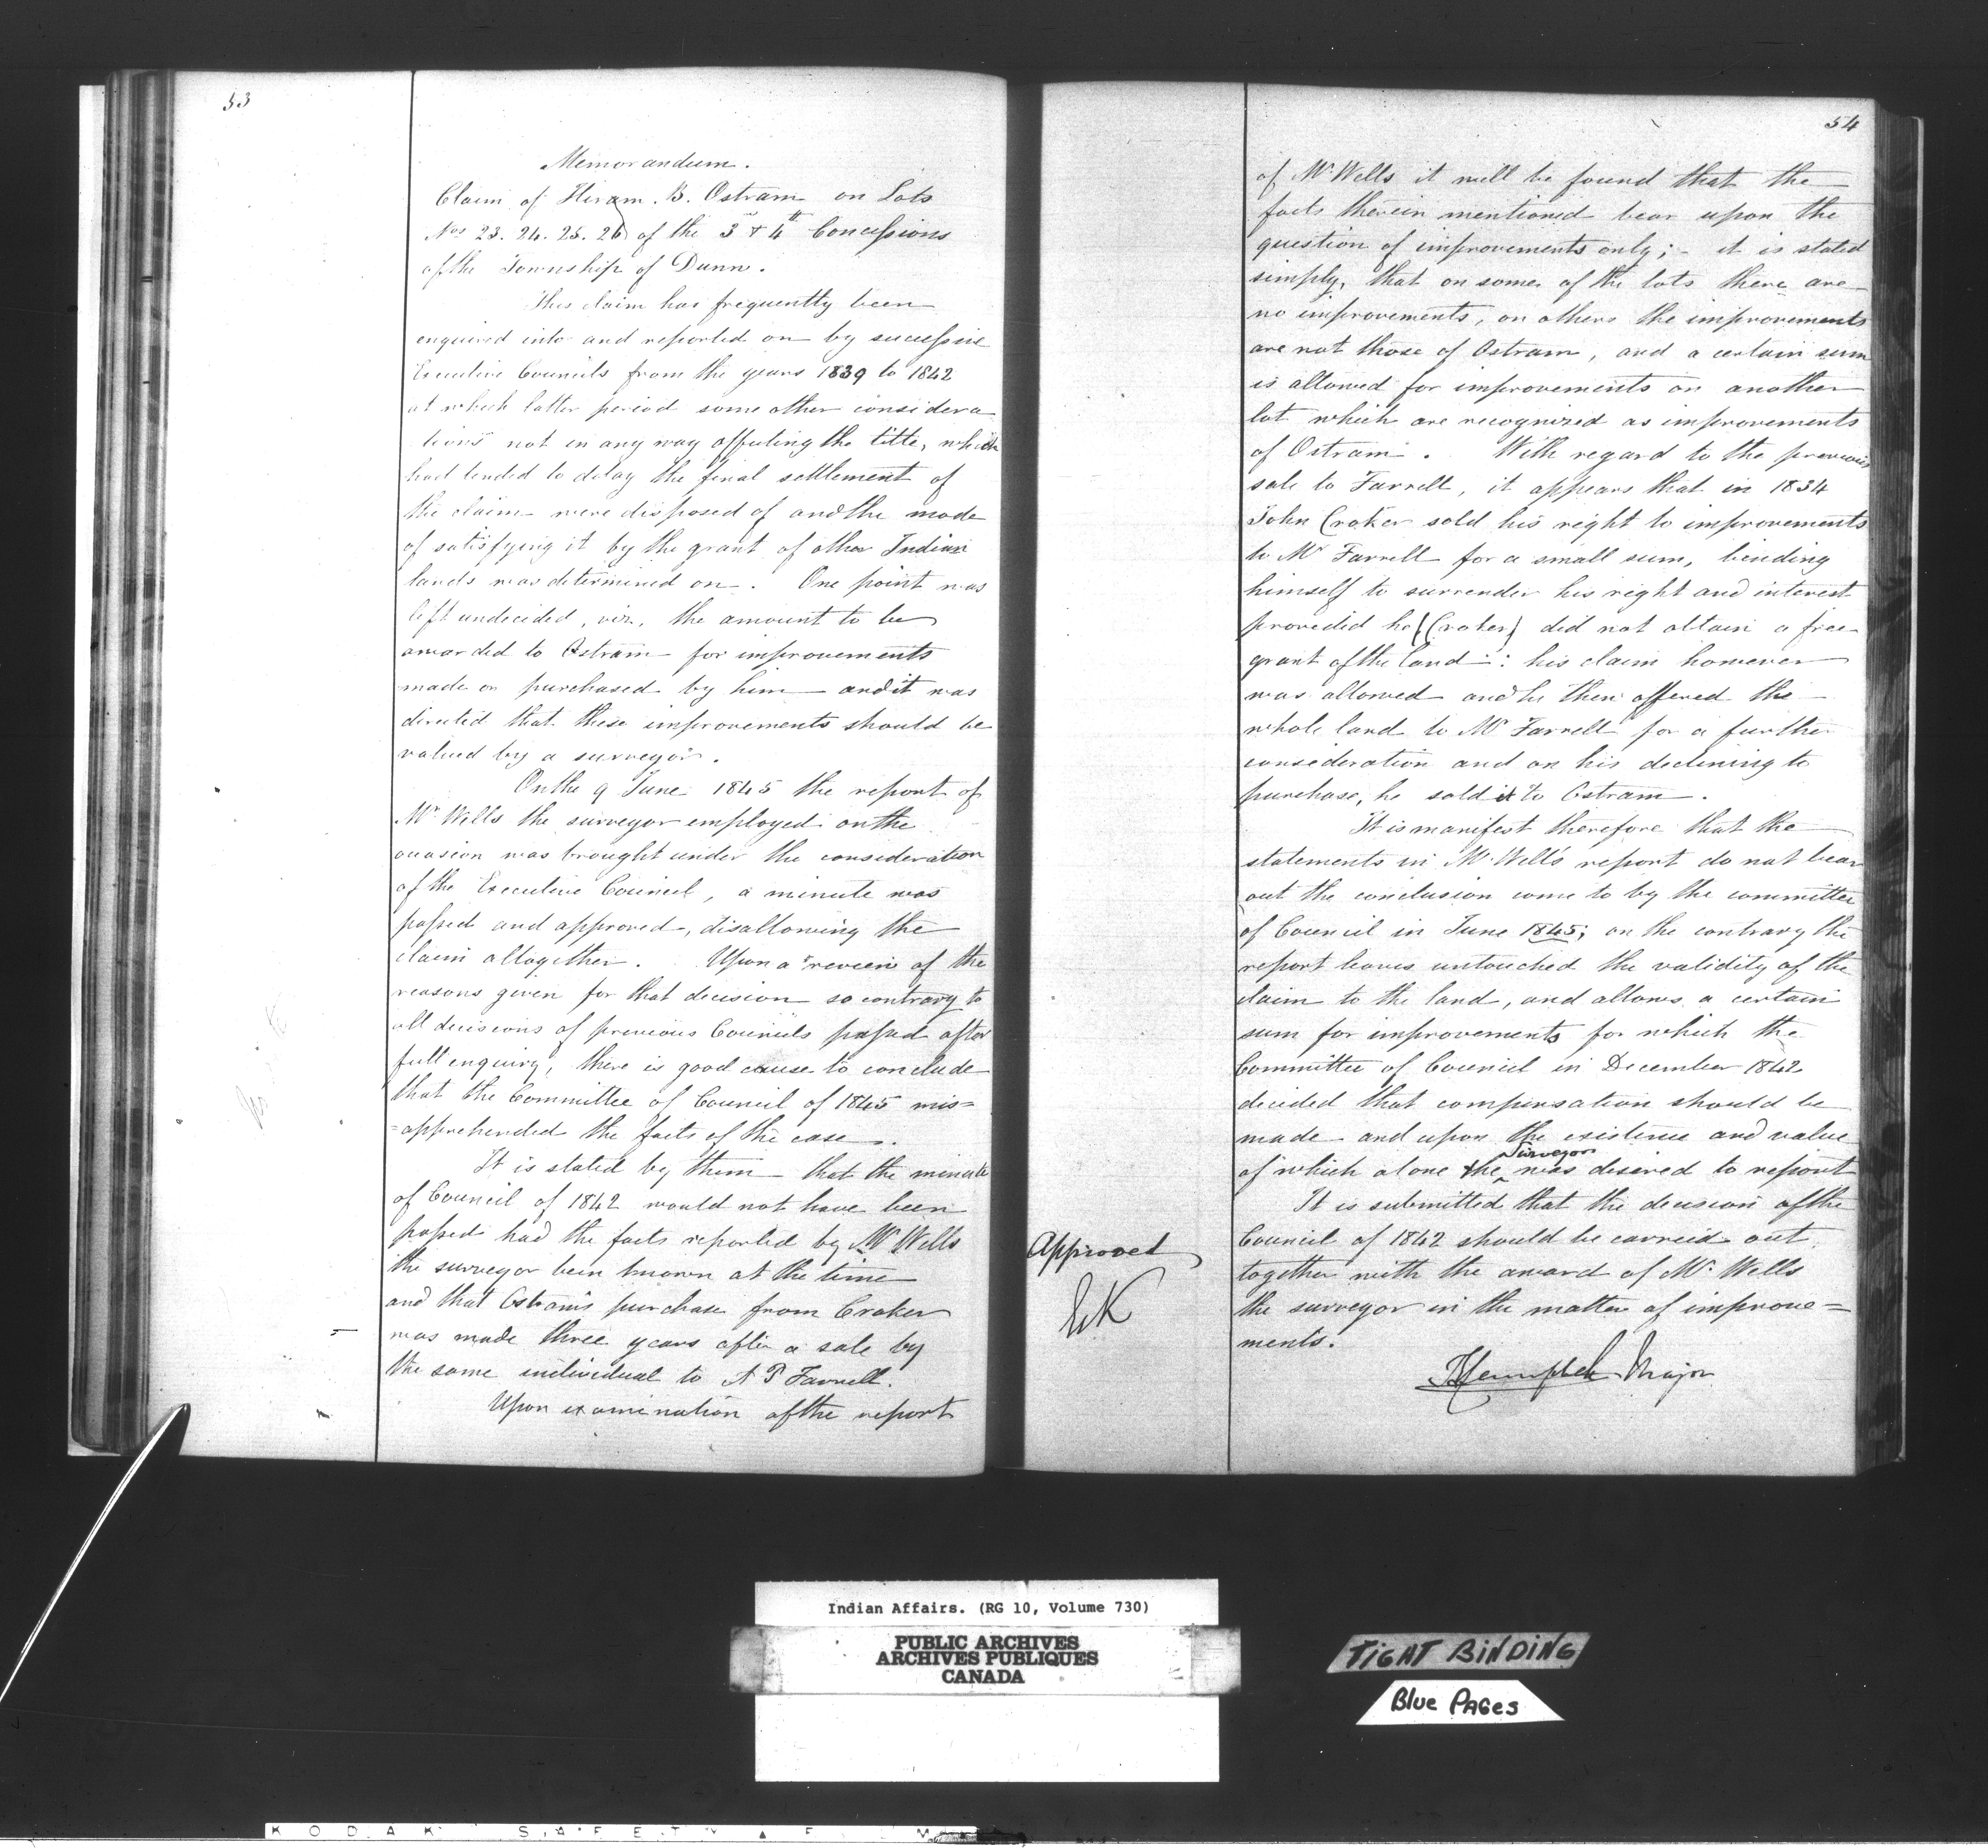 53
Memorandum.
Claim of Hiram. B. Ostram on Lots
Nos 23. 24. 25. 26 of the 3rd & 4th Concessions
of the Township of Dunn.
This claim has frequently been
enquired into and reported on by successive
Executive Councils from the years 1839 to 1842
at which latter period some other considera
tions not in any way affecting the title, which
had tended to delay the final settlement of
the claim were disposed of and the mode
of satisfying it by the grant of other Indian
lands was determined on. One point was
left undecided, viz, the amount to be
awarded to Ostram for improvements
made or purchased by him and it was
directed that these improvements should be
valued by a surveyor.
On the 9 June 1845 the report of
Mr Wells the surveyor employed on the
occasion was brought under the consideration
of the Executive Council, a minute was
passed and approved, disallowing the
claim altogether. Upon a review of the
reasons given for that decision so contrary to
all decisions of previous Councils passed after
full enquiry, there is good cause to conclude
that the Committee of Council of 1845 mis=
=apprehended the facts of the case.
It is stated by them that the minute
of Council of 1842 would not have been
passed had the facts reported by Mr Wells
the surveyor been known at the time
and that Ostram's purchase from Croker
was made three years after a sale by
the same individual to A P Farrell.
Upon examination of the report
54
of Mr Wells it will be found that the
facts therein mentioned bear upon the
question of improvements only; - it is stated
simply, that on some of the lots there are
no improvements, on others the improvements
are not those of Ostram, and a certain sum
is allowed for improvements on another
lot which are recognized as improvements
of Ostram. With regard to the previous
sale to Farrell, it appears that in 1834
John Croker sold his right to improvements
to Mr Farrell for a small sum, binding
himself to surrender his right and interest
provided he (Croker) did not obtain a free
grant of the land : his claim however
was allowed and he then offered the
whole land to Mr Farrell for a further
consideration and on his declining to
purchase, he sold it to Ostram.
It is manifest therefore that the
statements in Mr Well's report do not bear
out the conclusion come to by the committee
of Council in June 1845; on the contrary the
report leaves untouched the validity of the
claim to the land, and allows a certain
sum for improvements for which the
Committee of Council in December 1842
decided that compensation should be
made and upon the existence and value
of which alone the Surveyor was desired to report
It is submitted that the decision of the
Council of 1842 should be carreid out
together with the award of Mr Wells
the surveyor in the matter of improve=
ments.
Major
Approved
EK
Indian Affairs. (RG 10, Volume 730)
PUBLIC ARCHIVES
ARCHIVES PUBLIQUES
CANADA
TIGHT BINDING
Blue PAGes
KODAK SAFETY